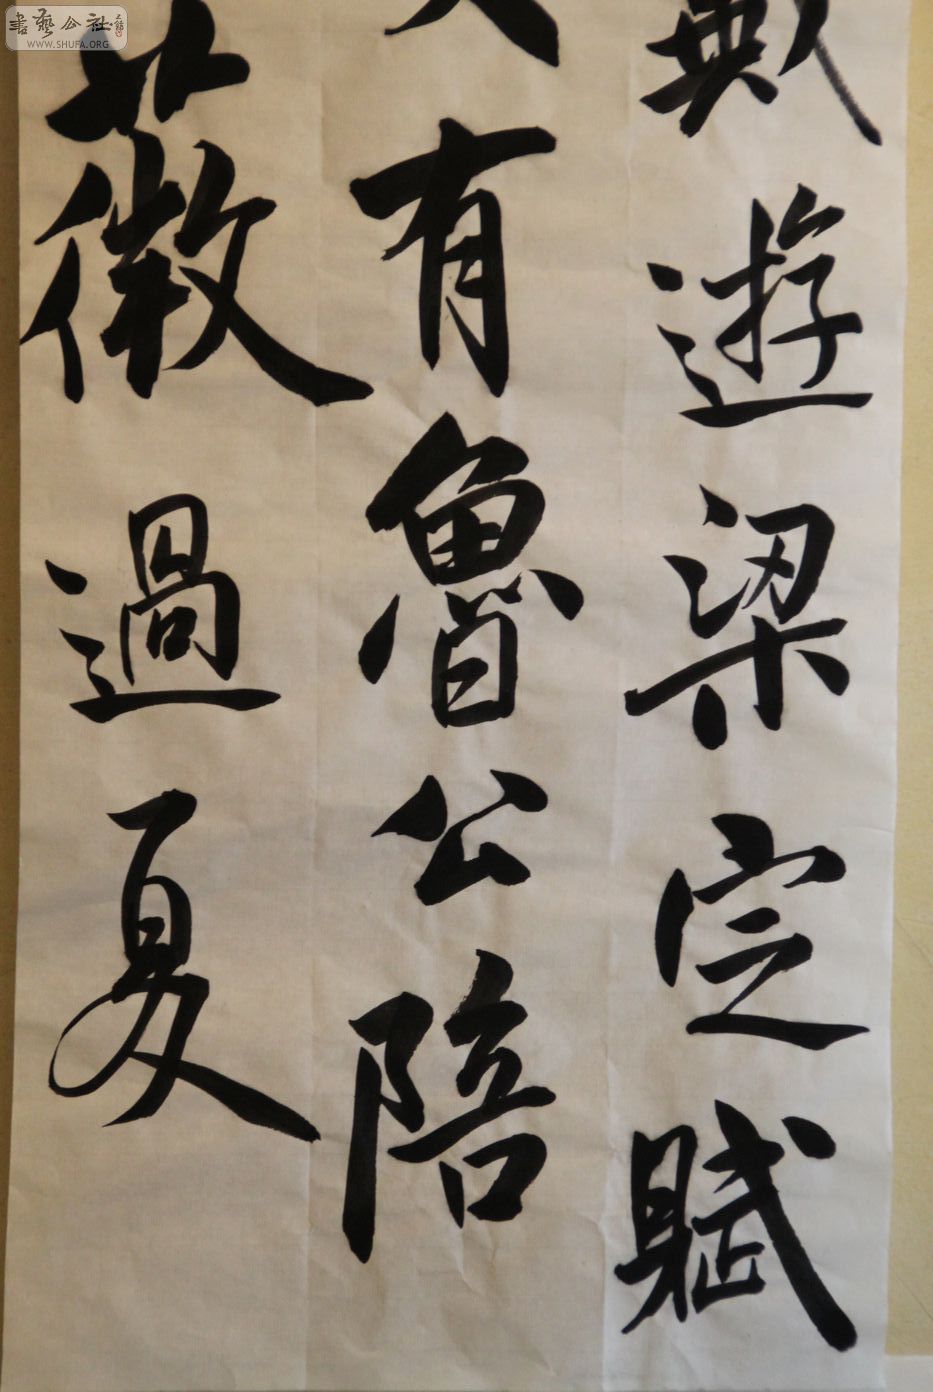 戴遊梁定賦
又有魯公陪
薇過夏
書藝公社
WWW.SHUFA.ORG